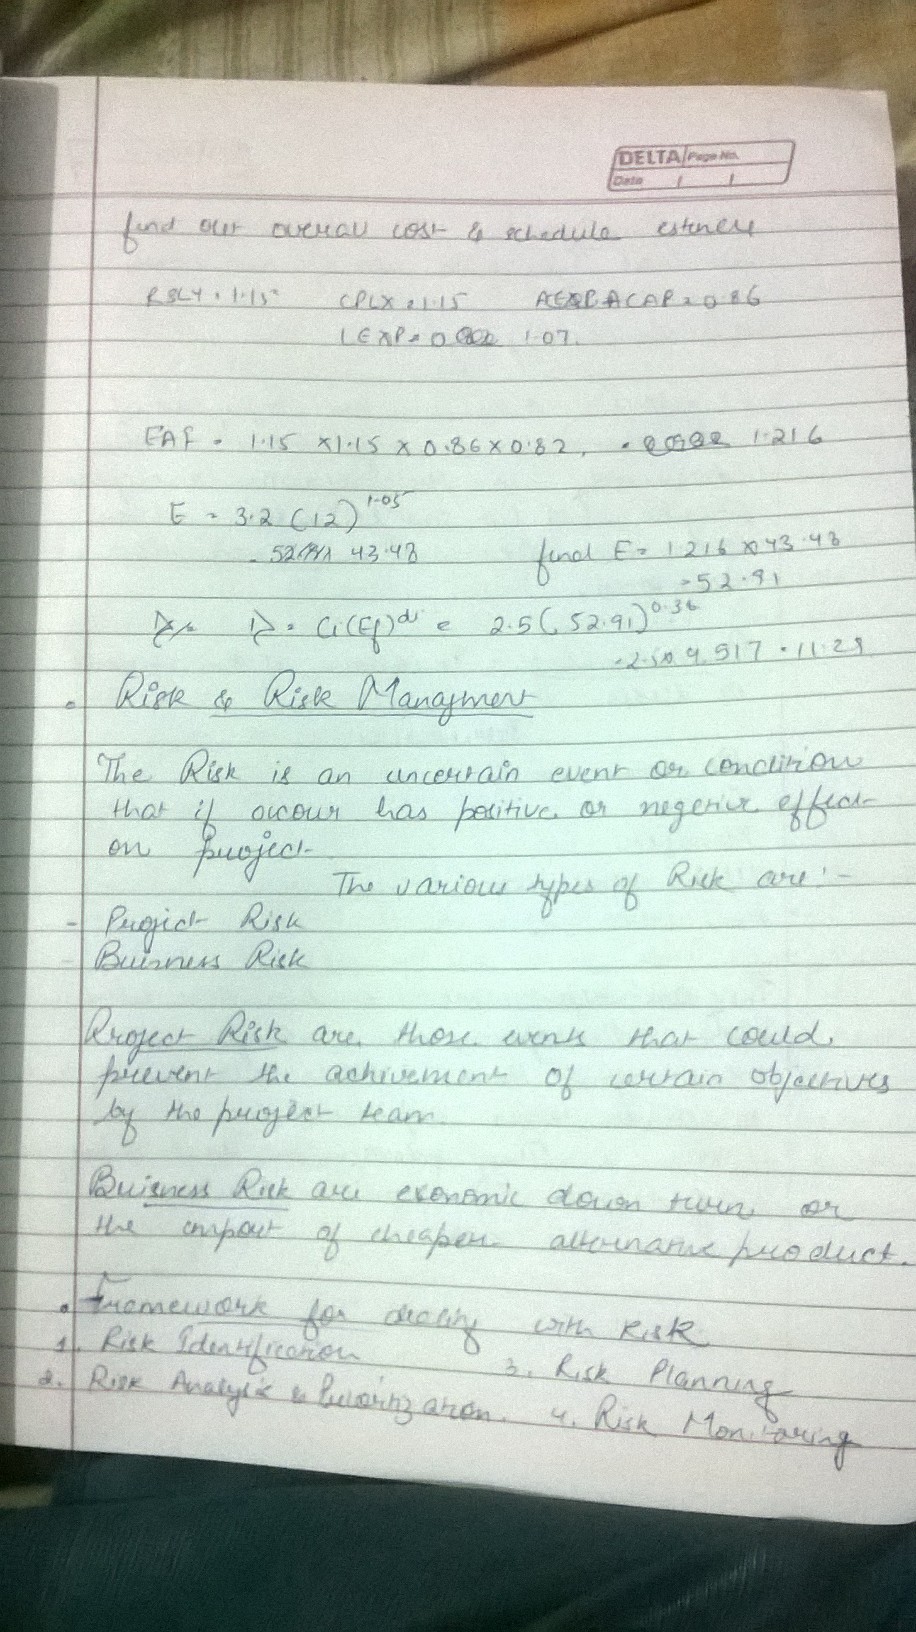 DELTA Page No.
Date / /
find our overall cost & schedule
RELY = 1.15 CPLX = 1.15 ACAP = 0.86
LEXP = 0 1.07
EAF = 1.15 x 1.15 x 0.86 x 0.82, = 1.216
E = 3.2 (12)^1.05
= 43.48 find E = 1.216 x 43.48
= 52.91
D = Ci(Ef)^di = 2.5(52.91)^0.36
= 2.5 x 4.517 = 11.29
• Risk & Risk Managment
The Risk is an uncertain event or condition
that if occour has positive or negetive effect
on project.
The various types of Risk are :-
- Project Risk
- Buisness Risk
Project Risk are those events that could
prevent the achivement of certain objectives
by the project team.
Buisness Risk are economic down turn or
the impact of cheaper alternative product.
• Framework for dealing with Risk
1. Risk Identification
3. Risk Planning
2. Risk Analysis & Priorization. 4. Risk Monitoring